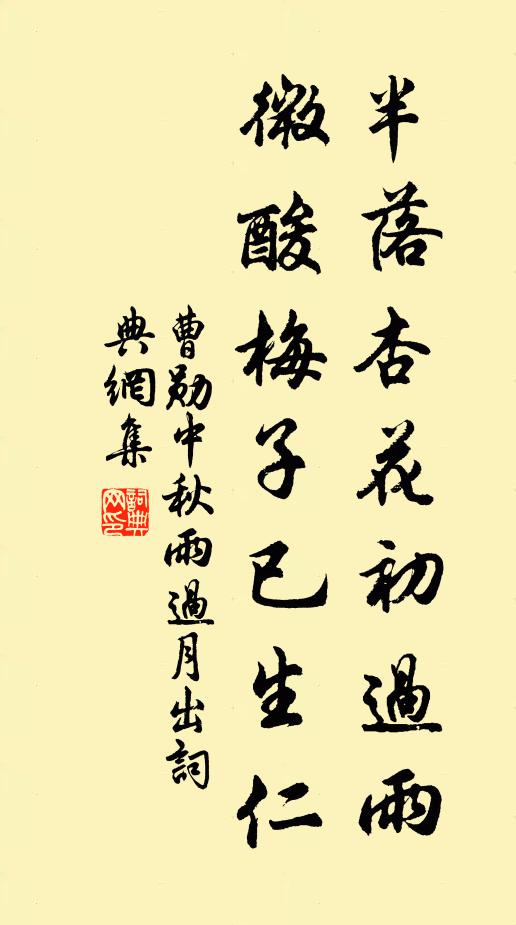 半落杏花初過雨
微酸梅子已生仁
曹勛中秋雨過月出詞
典網集
詞典
网印